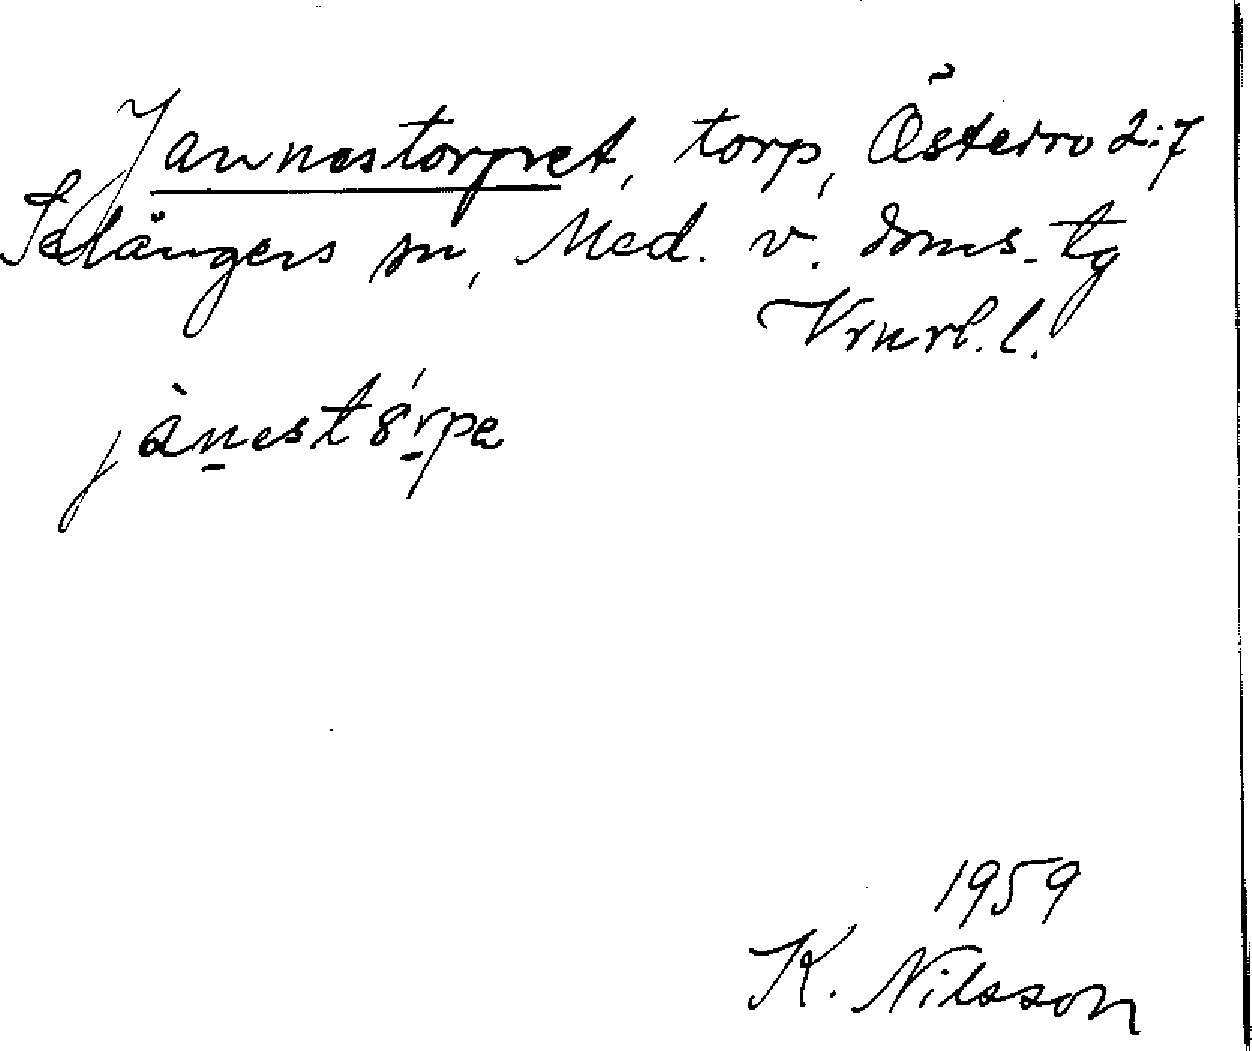 Jannestorpet, torp, Östeiro 2:7
Selångers sn, Med. v. doms. tg
jànest8́rpe
1959
K. Nilsson